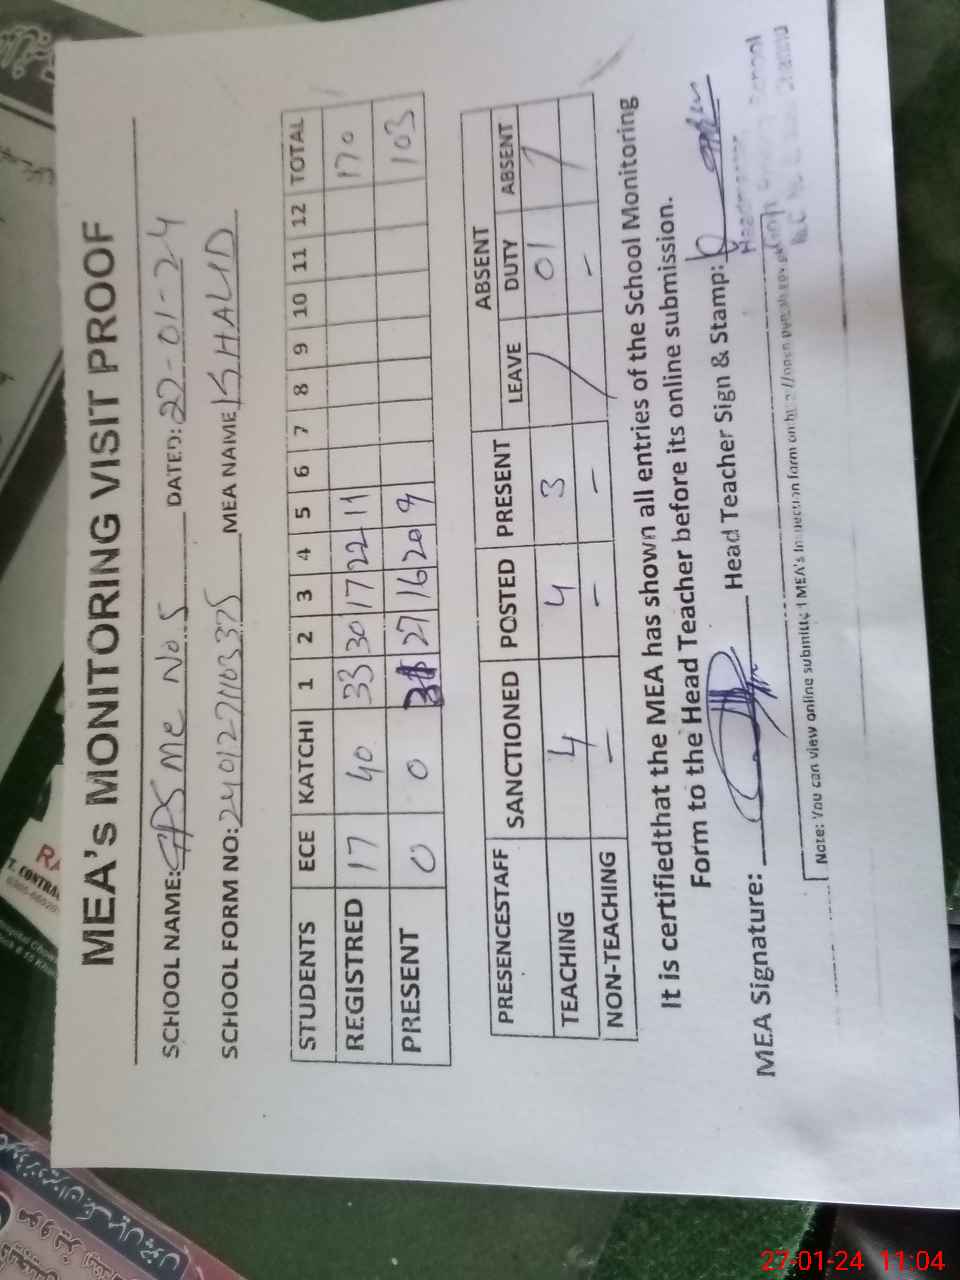 MEA's MONITORING VISIT PROOF
SCHOOL NAME: GPS MC No 5 DATED: 22-01-24
SCHOOL FORM NO: MEA NAME KHALID
STUDENTS ECE KATCHI 1 2 3 4 5 6 7 8 9 10 11 12 TOTAL
REGISTRED 17 40 33 30 17 22 11 170
PRESENT 0 0 31 27 16 20 9 103
ABSENT
PRESENCESTAFF SANCTIONED POSTED PRESENT LEAVE DUTY ABSENT
TEACHING 4 4 3 / 01 /
NON-TEACHING - - - / - /
It is certifiedthat the MEA has shown all entries of the School Monitoring
Form to the Head Teacher before its online submission.
MEA Signature: Head Teacher Sign & Stamp:
Headmaster
School
Note: You can view online submitted MEA's Inspection form on
RA
T. CONTRA
27-01-24 11:04